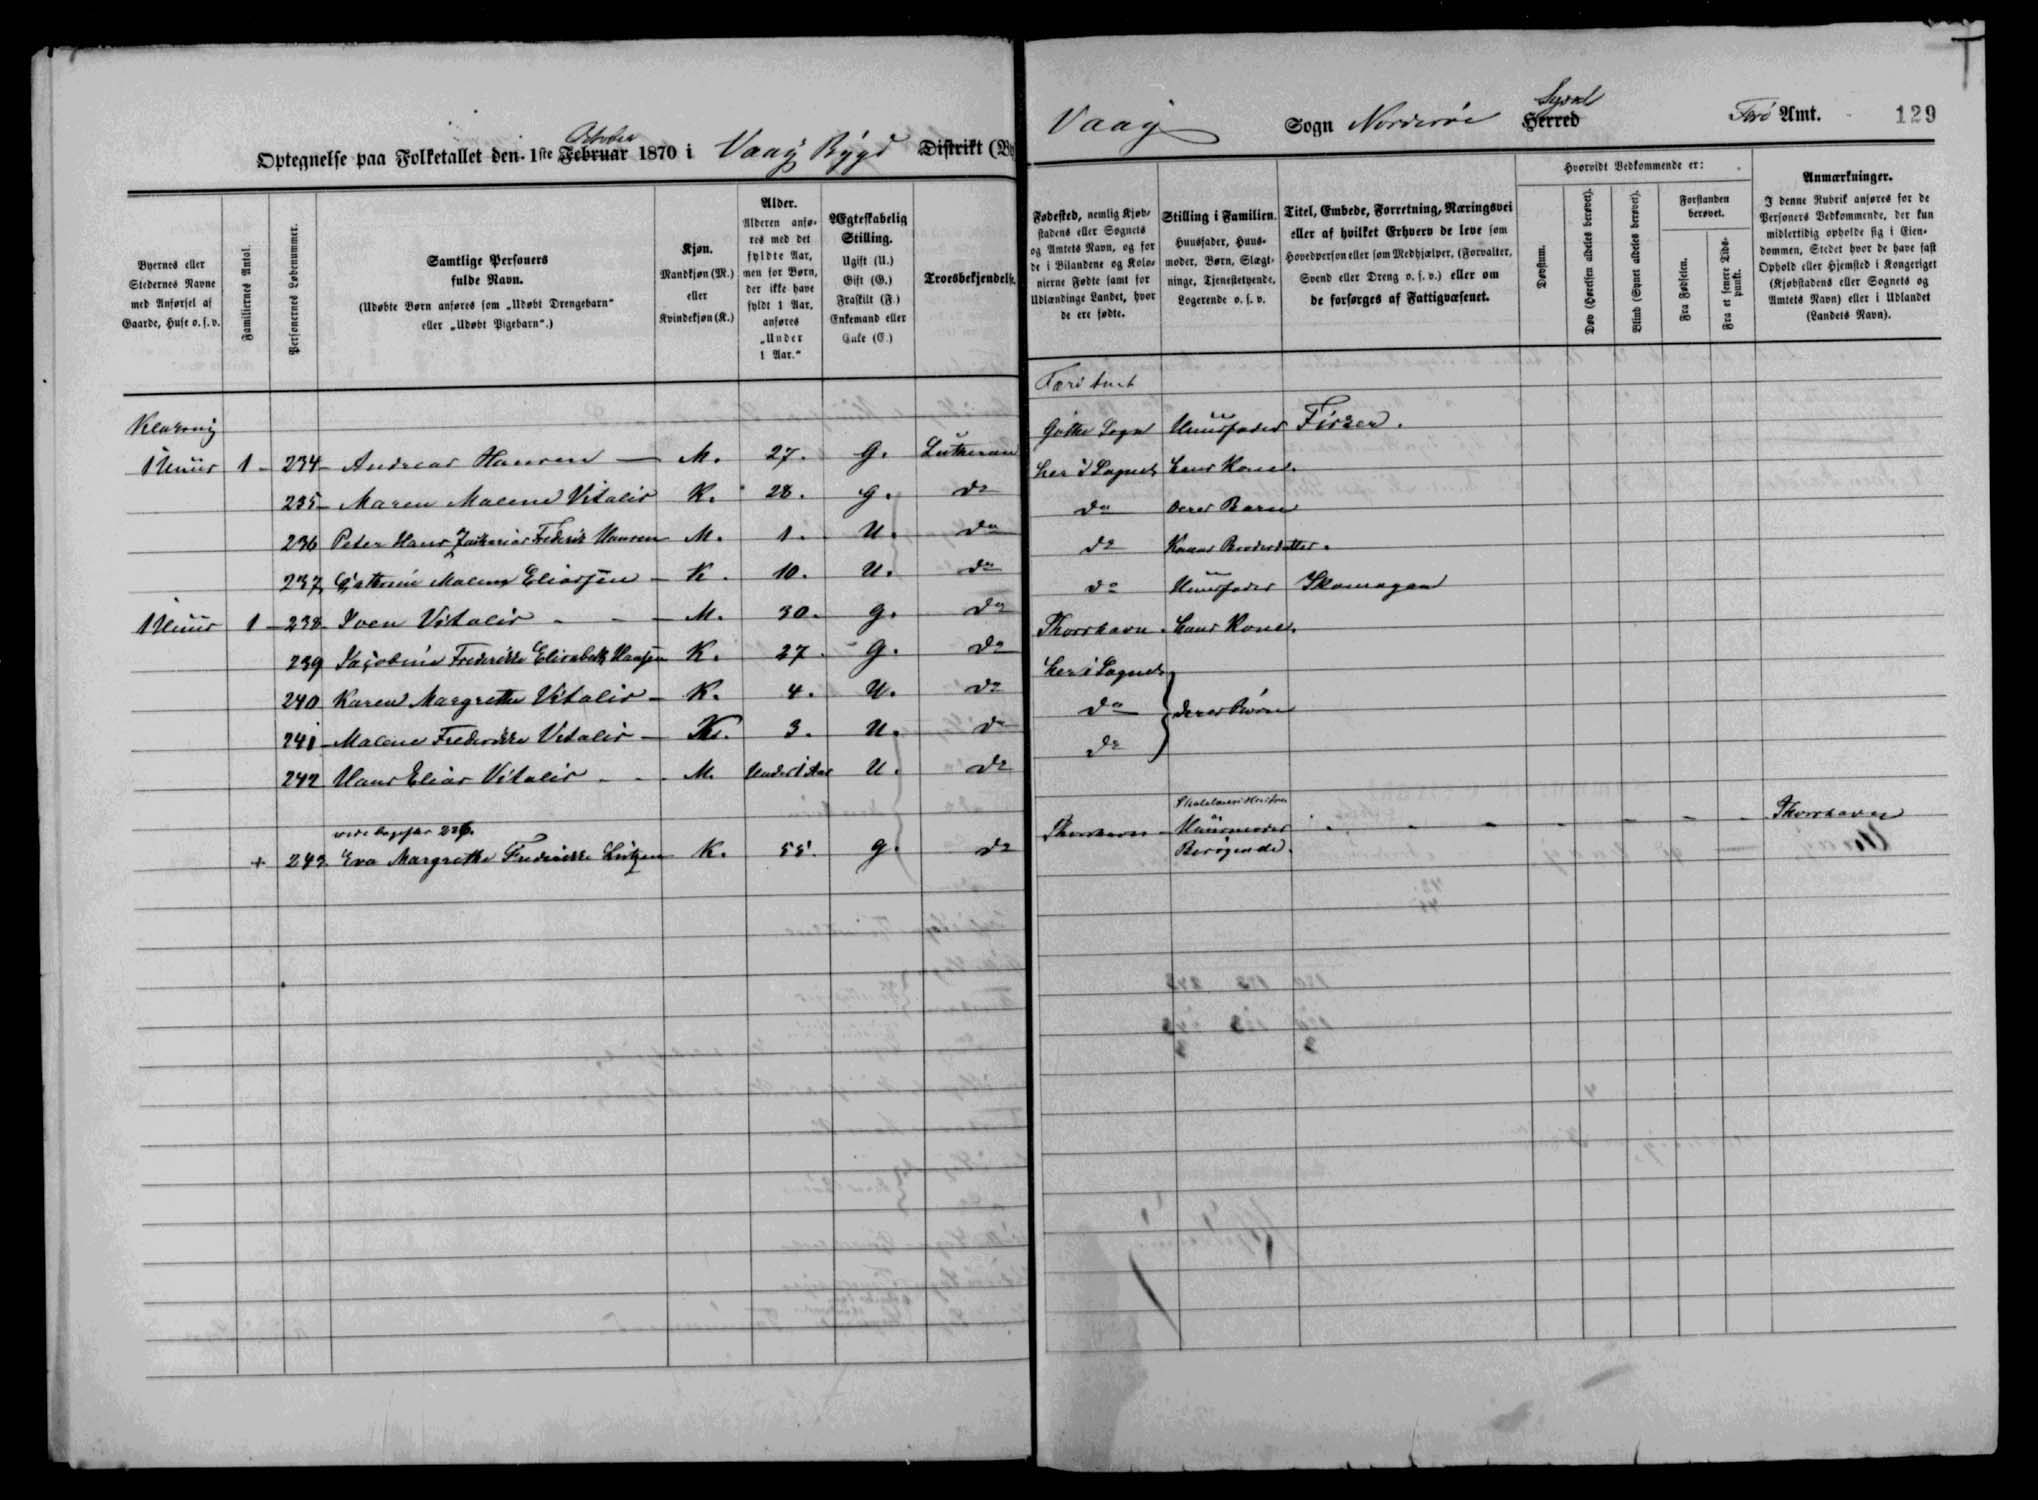 Optegnelse paa Folketallet den 1ste Februar October 1870 i Vaag Bÿgd Distrikt (By
Vaag Sogn Norderøe Herred Syssel Færø Amt. 129
Byernes eller Stedernes Navne med Anførsel af Gaarde, Huse o. s. v.
Familiernes Antal.
Personernes Løbenummer.
Samtlige Personers fulde Navn.
(Udøbte Børn anføres som „Udøbt Drengebarn“ eller „Udøbt Pigebarn“.)
Kjøn.
Mandkjøn (M.) eller Kvindekjøn (K.)
Alder.
Alderen anføres med det fyldte Aar, men for Børn, der ikke have fyldt 1 Aar, anføres „Under 1 Aar.“
Ægteskabelig Stilling.
Ugift (U.) Gift (G.) Fraskilt (F.) Enkemand eller Enke (E.)
Troesbekjendelse.
Fødested, nemlig Kjøbstadens eller Sognets og Amtets Navn, og for de i Bilandene og Kolonierne Fødte samt for Udlændinge Landet, hvor de ere fødte.
Stilling i Familien.
Huusfader, Huusmoder, Børn, Slægtninge, Tjenestetyende, Logerende o. s. v.
Titel, Embede, Forretning, Næringsvei eller af hvilket Erhverv de leve som Hovedperson eller som Medhjælper, (Forvalter, Svend eller Dreng o. s. v.) eller om de forsørges af Fattigvæsenet.
Hvorvidt Vedkommende er:
Døvstum.
Døv (Hørelsen aldeles berøvet).
Blind (Synet aldeles berøvet).
Forstanden berøvet.
Fra Fødselen.
Fra et senere Tidspunkt.
Anmærkninger.
I denne Rubrik anføres for de Personers Vedkommende, der kun midlertidig opholde sig i Eiendommen, Stedet hvor de have fast Ophold eller Hjemsted i Kongeriget (Kjøbstadens eller Sognets og Amtets Navn) eller i Udlandet (Landets Navn).
Færø Amt
1 Huus 1 - 234 - Andreas Hansen — M. 27. G. Lutheran Gøthe Sogn Huusfader Fisker.
235 - Maren Malene Vitalis K. 28. g. do her i Sognet hans Kone.
236 Peter Hans Zacharias Frederik Hansen M. 1. U. do do deres Barn
237 Cathrine Malene Eliassen - K. 10. U. do do Konens Broderdatter.
1 Huus 1 - 238 - Joen Vitalis - - M. 30. g. do do Huusfader Skomager
239 Jacobine Frederikke Elisabeth Hansen K. 27. g. do Thorshavn. hans Kone.
240 Karen Margrethe Vitalis - K. 4. U. do her i Sognet
241 - Malene Frederikke Vitalis - K. 3. U. do do deres Børn
242 Hans Elias Vitalis - - - M. Under 1 Aar U. do do
+ 243 Eva Margrethe Frederikke Lützen K. 55. g. do Thorshavn - Huusmoder Besøgende. Thorshavn